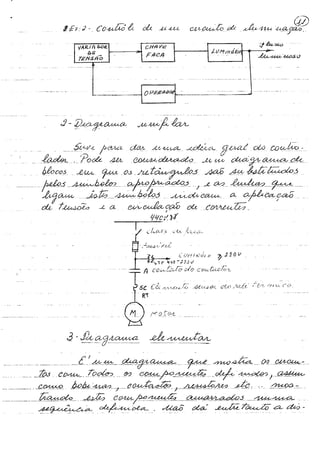 11
# Ex: 2 - Controle de um circuito de iluminação.
VARIADOR DE TENSÃO
CHAVE FACA
LUMINÁRIA
fluxo luminoso
OPERADOR
2- Diagrama unifilar
Serve para dar uma idéia geral do contro-
lador. Pode ser considerado um diagrama de
blocos em que os retângulos são substituídos
pelos símbolos apropriados, e as linhas que
ligam estes símbolos indicam a aplicação
de tensões e a circulação de correntes.
440V
chave
fusível
comando 220V
440-220V
A contato do contactor
SC elemento sensor do relé térmico
RT
M motor
3- Diagrama elementar
É um diagrama que mostra os circui-
tos com todos os componentes definidos, assim
como bobinas, contactos, resistores etc... mos-
trando estes componentes amarrados numa
sequência definida. Não dá entretanto a dis-